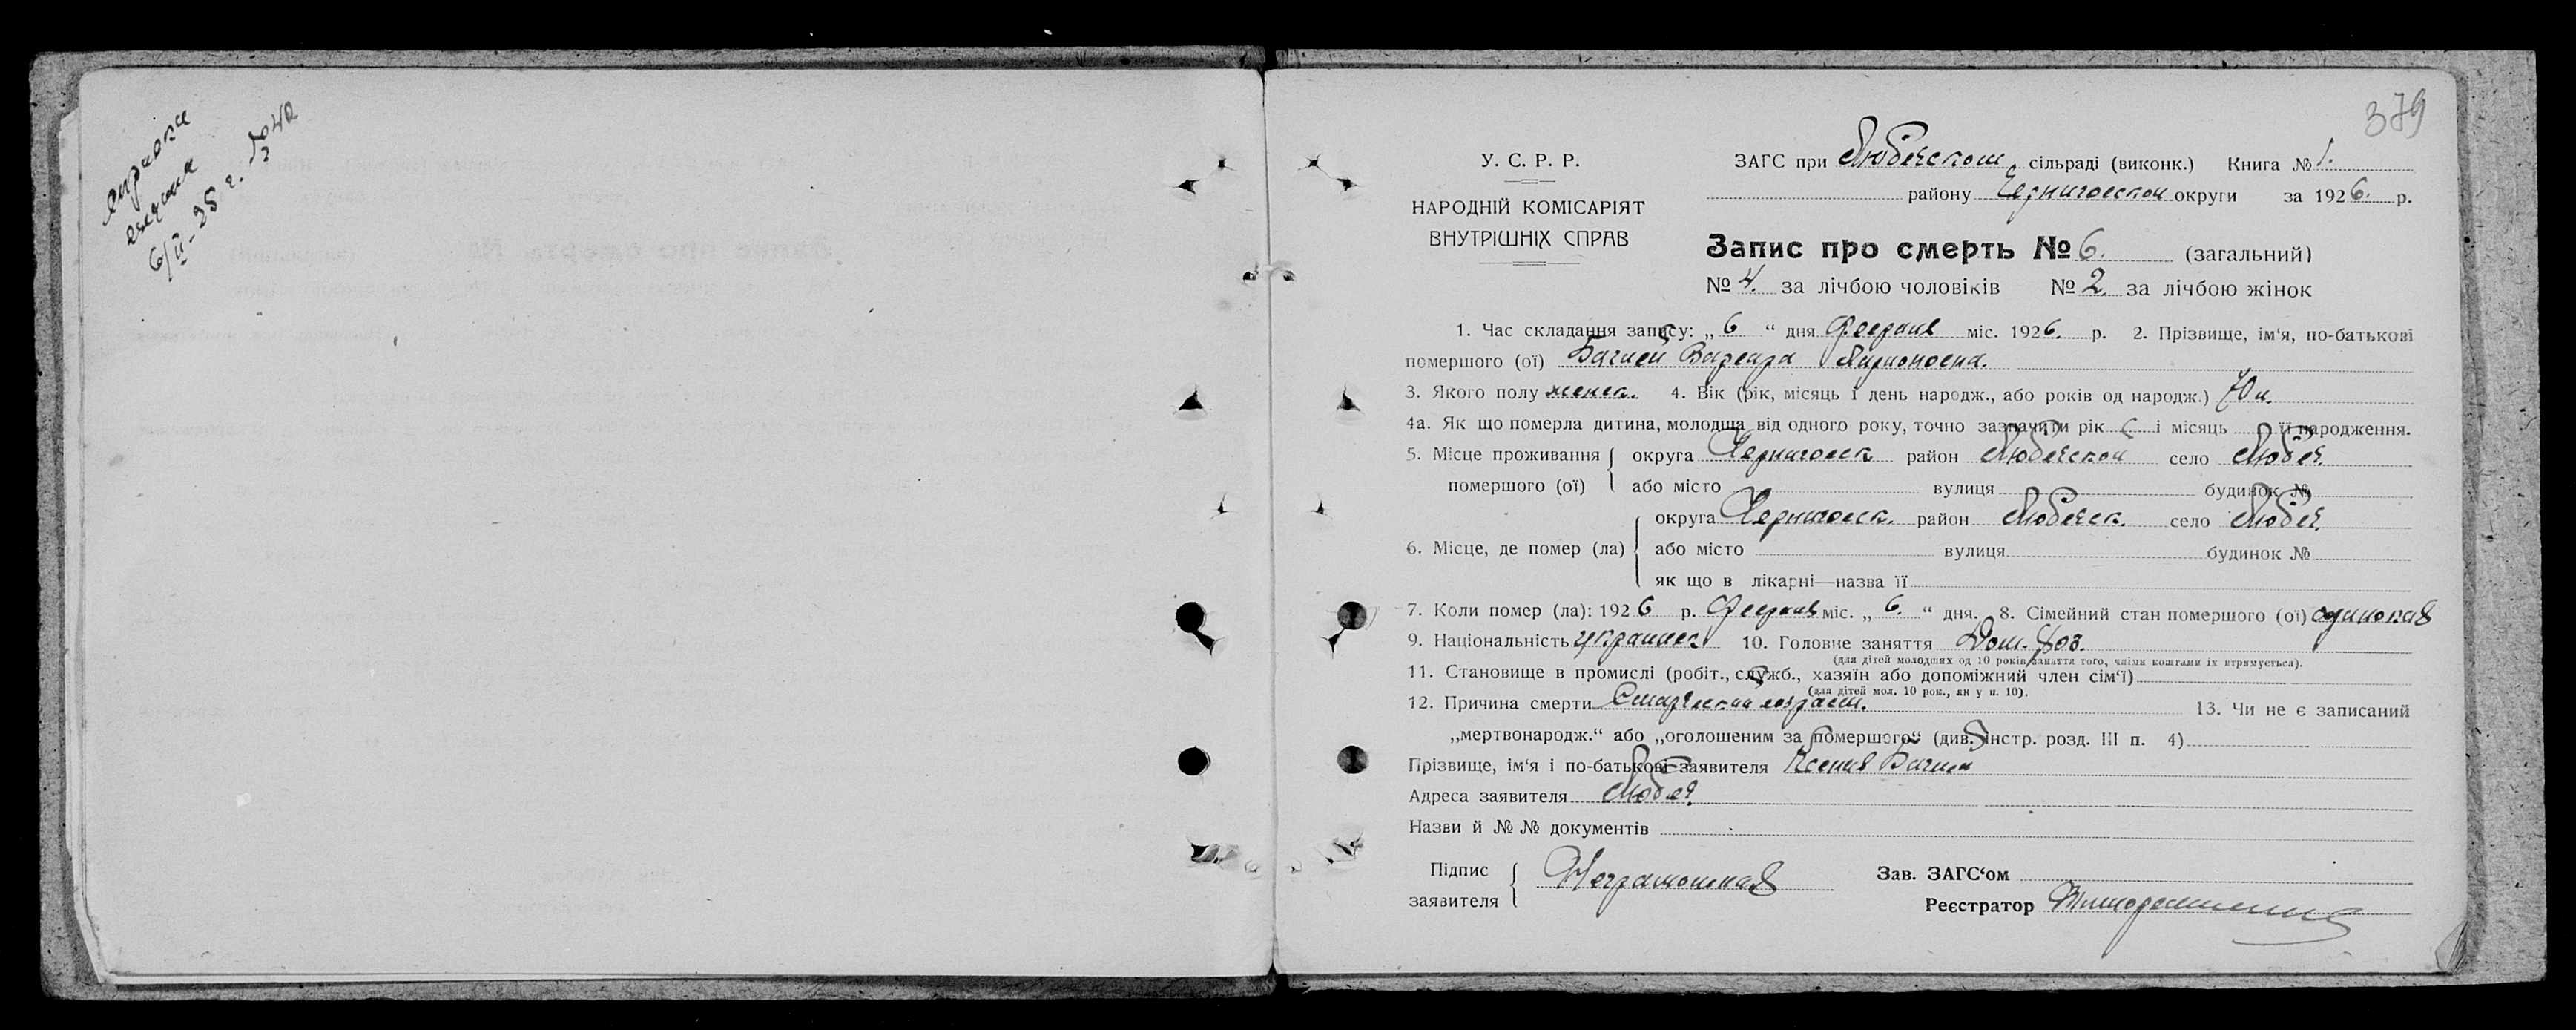 справка
выдана
6/II-25 г. № 42
379
У. С. Р. Р.
НАРОДНІЙ КОМІСАРІЯТ
ВНУТРІШНІХ СПРАВ
ЗАГС при Любечском сільраді (виконк.) Книга № 1.
району Черниговской округи за 1926. р.
Запис про смерть № 6. (загальний)
№ 4. за лічбою чоловіків № 2. за лічбою жінок
1. Час складання запису: „ 6 “ дня февраля міс. 1926. р. 2. Прізвище, ім‘я, по-батькові
помершого (ої) Варвара
3. Якого полу женск. 4. Вік (рік, місяць і день народж., або років од народж.) 70 л.
4а. Як що померла дитина, молодша від одного року, точно зазначити рік і місяць її народження.
5. Місце проживання округа Черниговск район Любечской село Любеч.
помершого (ої) або місто вулиця будинок №
округа Черниговск. район Любечск. село Любеч.
6. Місце, де помер (ла) або місто вулиця будинок №
як що в лікарні—назва її
7. Коли помер (ла): 1926 р. февраля міс. „ 6. “ дня. 8. Сімейний стан помершого (ої) одинокая
9. Національність украинск 10. Головне заняття Дом. хоз.
(для дітей молодших од 10 років заняття того, чиїми коштами їх утримується).
11. Становище в промислі (робіт., служб., хазяїн або допоміжний член сім‘ї)
(для дітей мол. 10 рок., як у п. 10).
12. Причина смерти Старческий возраст. 13. Чи не є записаний
„мертвонародж.“ або „оголошеним за помершого“ (див. Інстр. розд. III п. 4)
Прізвище, ім‘я і по-батькові заявителя Ксения
Адреса заявителя Любеч
Назви й № № документів
Підпис
заявителя Неграмотная
Зав. ЗАГС‘ом
Реєстратор